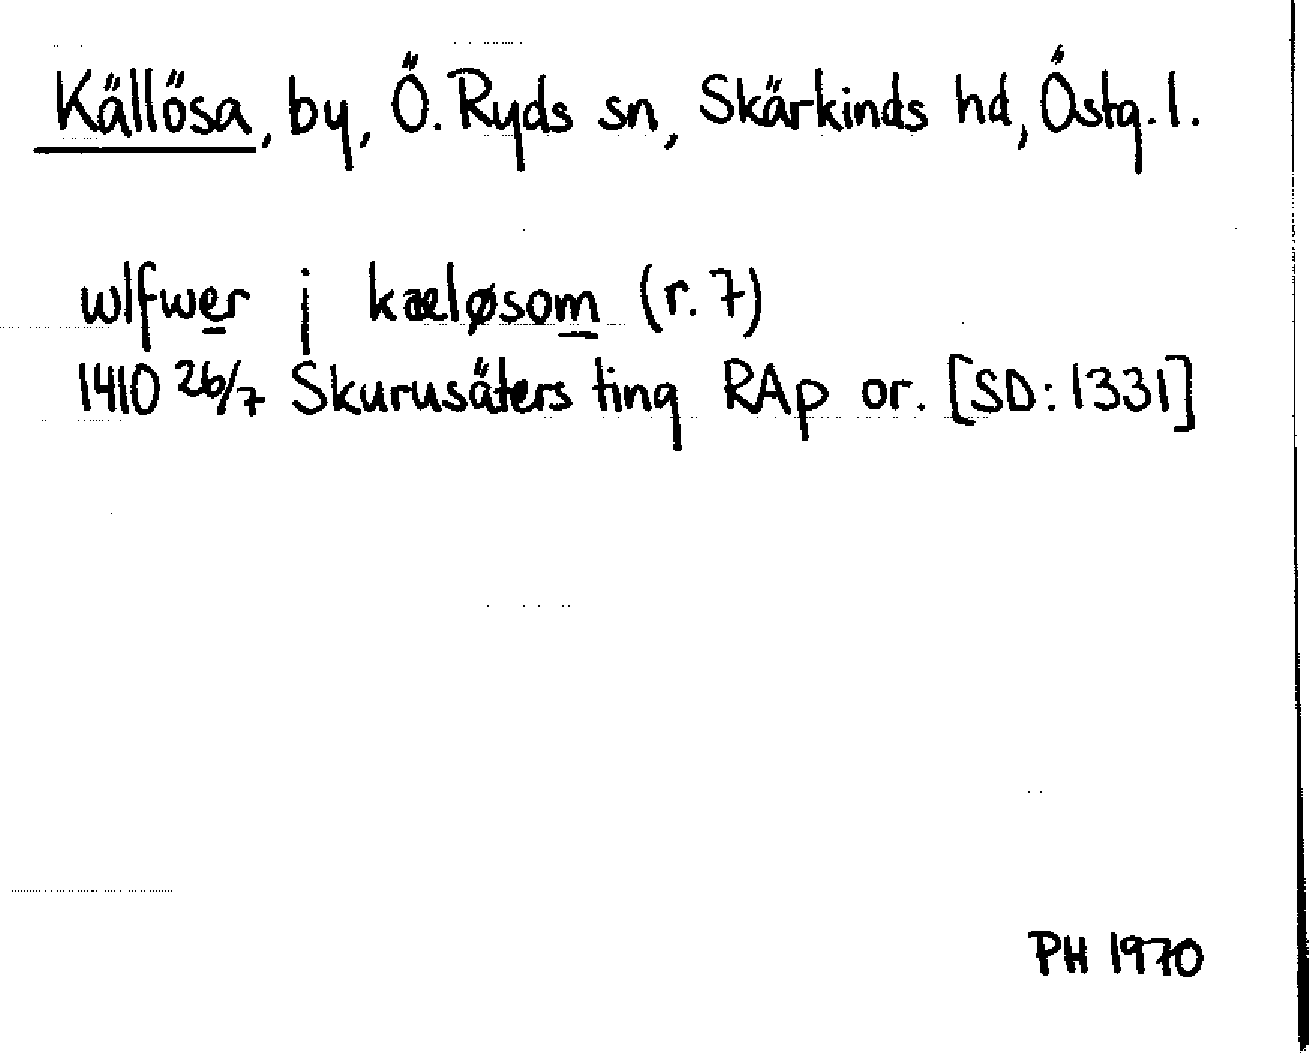 Källösa, by, Ö. Ryds sn, Skärkinds hd, Östg. l.
wlfwer j kæløsom (r. 7)
1410 26/7 Skurusäters ting RAp or. [SD: 1331]
PH 1970